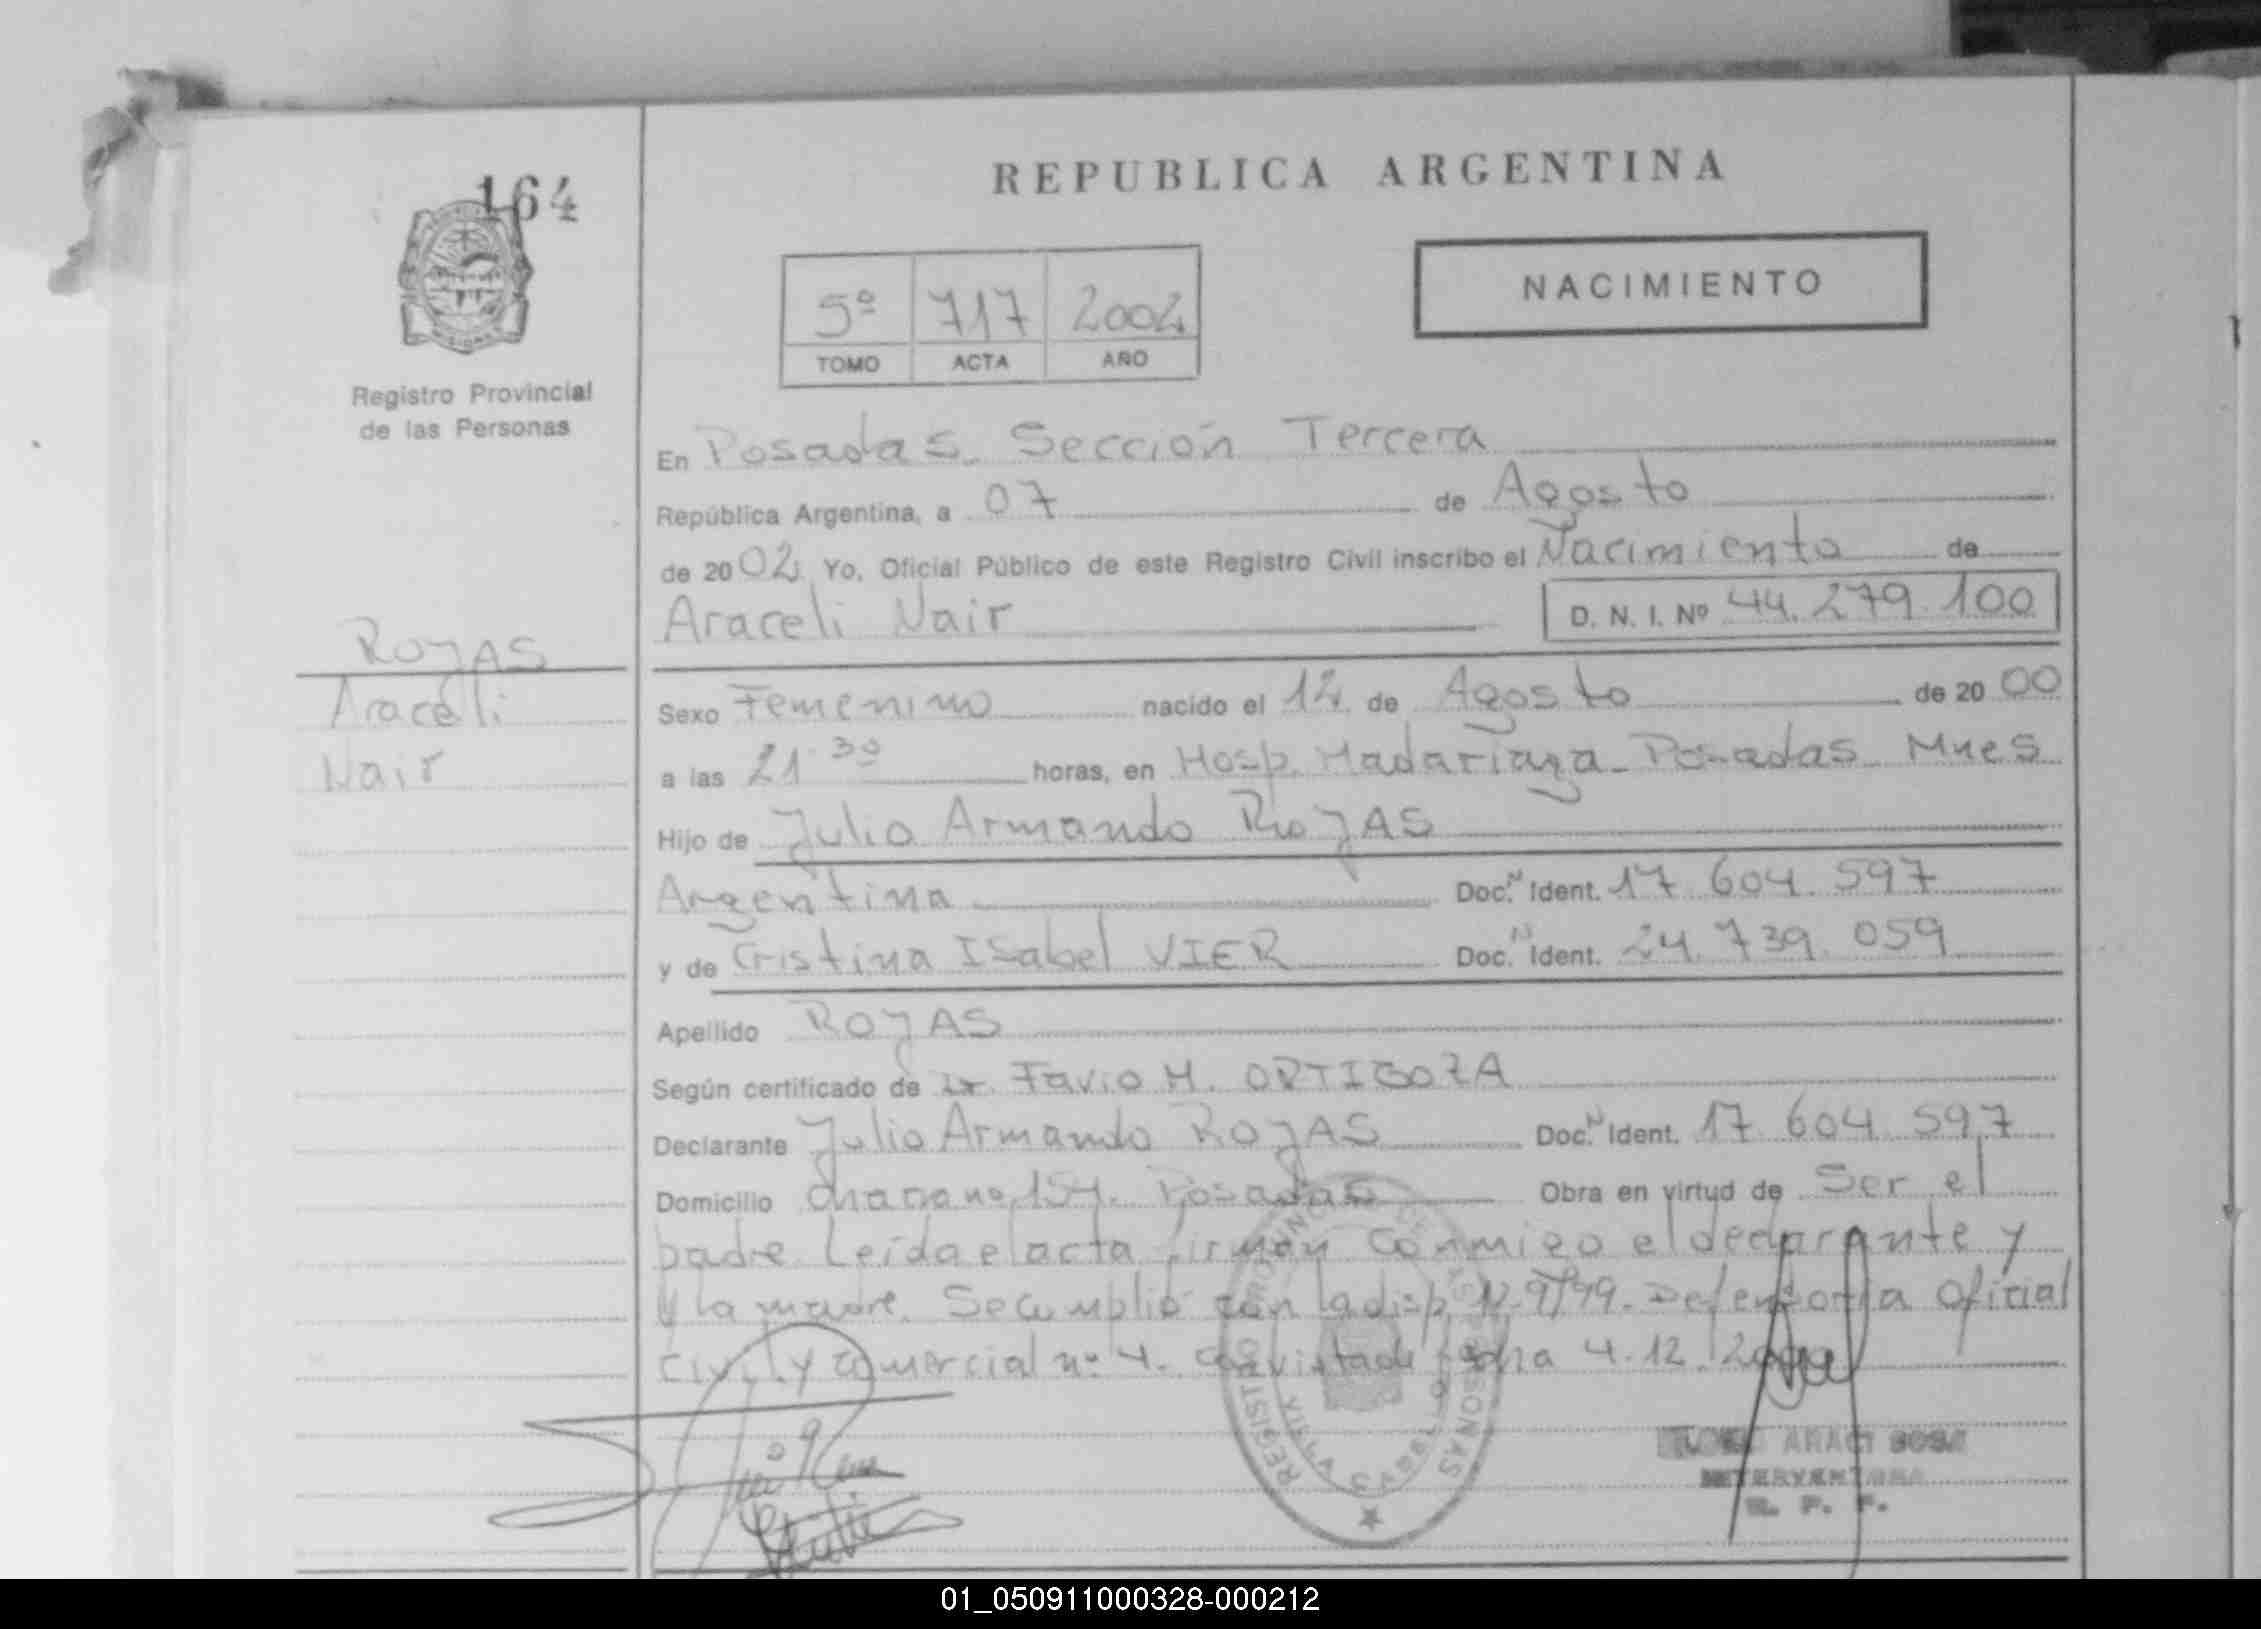 REPUBLICA ARGENTINA
164
NACIMIENTO
5º 717 2002
TOMO ACTA AÑO
Registro Provincial
de las Personas
En Posadas. Sección Tercera
República Argentina, a 07 de Agosto
de 2002 Yo, Oficial Público de este Registro Civil inscribo el Nacimiento de
Araceli Nair D. N. I. Nº 44.279.100
ROJAS
Araceli
Nair
Sexo Femenino nacido el 12 de Agosto de 2000
a las 21 30 horas, en Hosp. Madariaga - Posadas Mnes
Hijo de Julio Armando ROJAS
Argentina Doc. N Ident. 17.604.597
y de Cristina Isabel VIER Doc. N Ident. 24.739.059
Apellido ROJAS
Según certificado de Dr. Favio H. ORTIGOZA
Declarante Julio Armando ROJAS Doc. N Ident. 17.604.597
Domicilio Chacra nº 154. Posadas Obra en virtud de Ser el
padre. Leída el acta firman conmigo el declarante y
y la madre. Se cumplió con la disp. Nº 9/99. Defensoria Oficial
Civil y Comercial nº 4. con vista de fecha 4.12.
REGISTRO PROVINCIAL DE LAS PERSONAS
VILLA CABELLO
ARACI SOSA
INTERVENTORA
R. P. P.
01_050911000328-000212